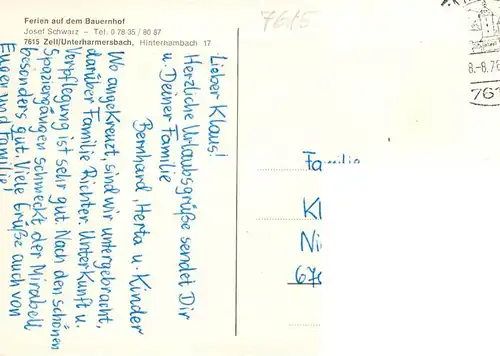 Ferien auf dem Bauernhof
Josef Schwarz – Tel. 0 78 35 / 80 87
7615 Zell/Unterharmersbach, Hinterhambach 17
7615
8.-8.78
761
Lieber Klaus!
Herzliche Urlaubsgrüße sendet Dir
u. Deiner Familie
Bernhard, Herta u. Kinder
Wo angekreuzt, sind wir untergebracht,
darüber Familie Richter. Unterkunft u.
Verpflegung ist sehr gut. Nach den schönen
Spaziergängen schmeckt der Mirabell
besonders gut. Viele Grüße auch von
Eugen und Familie!
Familie
Kl
Ni
670